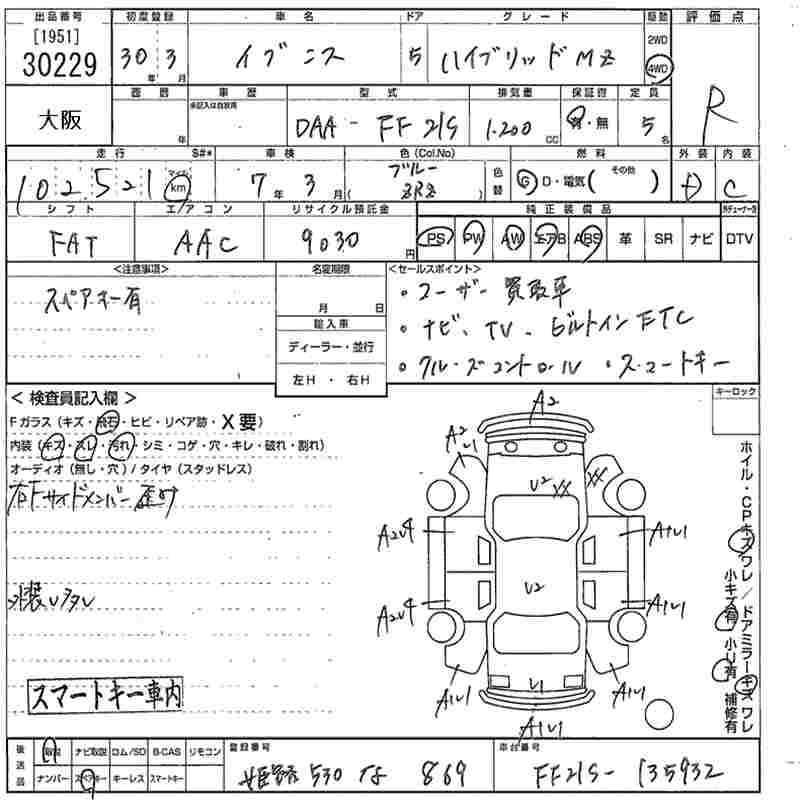 出品番号 初度登録 車名 ドア グレード 駆動 評価点
[1951]
30229 30年 3月 イグニス 5 ハイブリッドMZ 2WD 4WD R
大阪 西暦 年 車歴 未記入は自家用 型式 排気量 保証書 定員
DAA-FF21S 1.200cc 有・無 5名
走行 マイル km S#* 車検 色(Col.No) 色替 燃料 外装 内装
102.521 km 7年 3月 ブルー ( ZRZ ) G D・電気( その他 ) D C
シフト エアコン リサイクル預託金 純正装備品
FAT AAC 9030円 PS PW AW エアB ABS 革 SR ナビ DTV
<注意事項> 名変期限 <セールスポイント>
スペアキー有 月 日 ・ユーザー買取車
輸入車 ・ナビ、TV、ビルトインETC
ディーラー・並行 ・クルーズコントロール ・スマートキー
左H・右H
キーロック
<検査員記入欄>
Fガラス(キズ・飛石・ヒビ・リペア跡・X要)
内装(キズ・スレ・汚れ・シミ・コゲ・穴・キレ・破れ・割れ)
オーディオ(無し・穴)/タイヤ(スタッドレス)
右Fサイドメンバー歪み
外装ムラ
スマートキー車内
A2
A2 U1
U2 XX XX
A2U4 A1U1
U2
A2U4 A1U1
U1
A1U1 A1U1
A1U1
ホイル・CPキズワレ/ドアミラーキズワレ
小キズ有 小U有 補修有
後送品 取説 ナビ取説 ロム/SD B-CAS リモコン 登録番号 車台番号
ナンバー スペアキー キーレス スマートキー 姫路 530 な 869 FF21S-135932